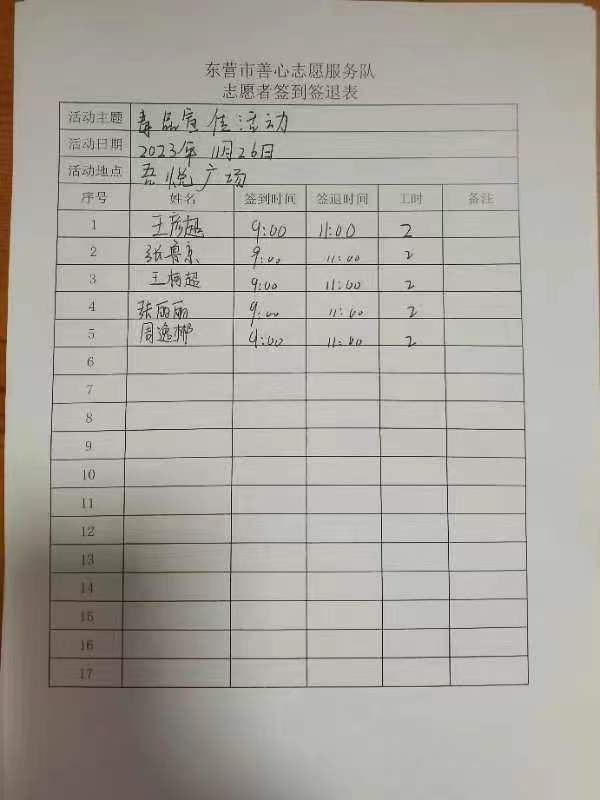 东营市善心志愿服务队
志愿者签到签退表
活动主题 毒品宣传活动
活动日期 2023年11月26日
活动地点 吾悦广场
序号 姓名 签到时间 签退时间 工时 备注
1 王彦超 9:00 11:00 2
2 张鲁京 9:00 11:00 2
3 王梅超 9:00 11:00 2
4 张丽丽 9:00 11:00 2
5 周逸 9:00 11:00 2
6
7
8
9
10
11
12
13
14
15
16
17